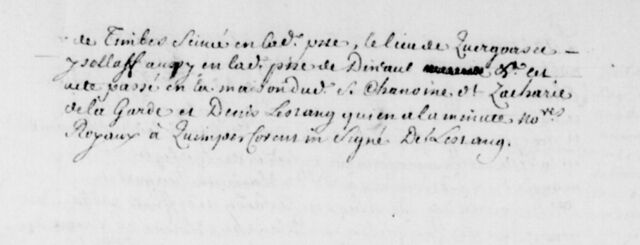 de Timbes Scitué en lad.e prse, le lieu de Quergoasec
ysollaff aussy en lad.e prse de Dinaul &a et
acte passé en la maison dud. S.r Chanoine et Zacharie
de la Garde et Denis Lestang qui en a la minute No.res
Royaux à Quimper Corentin Signé De Lestang.